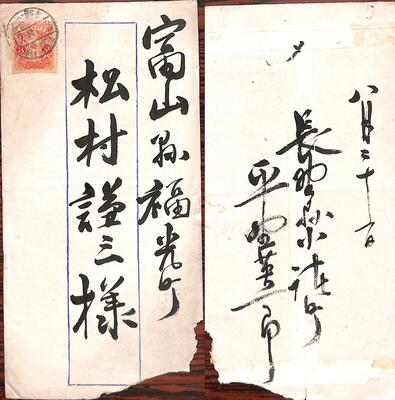 富山縣福光町
松村謙三様
〆
八月三十一日
長野縣小諸町
平野英一郎